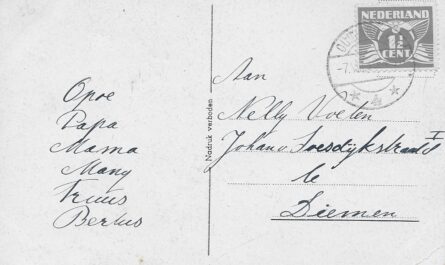 Opoe
Papa
Mama
Many
Truus
Bertus
Nadruk verboden
NEDERLAND
1½
CENT
Aan
Nelly Voeten
Johan v. Soesdijkstraat
te
Diemen